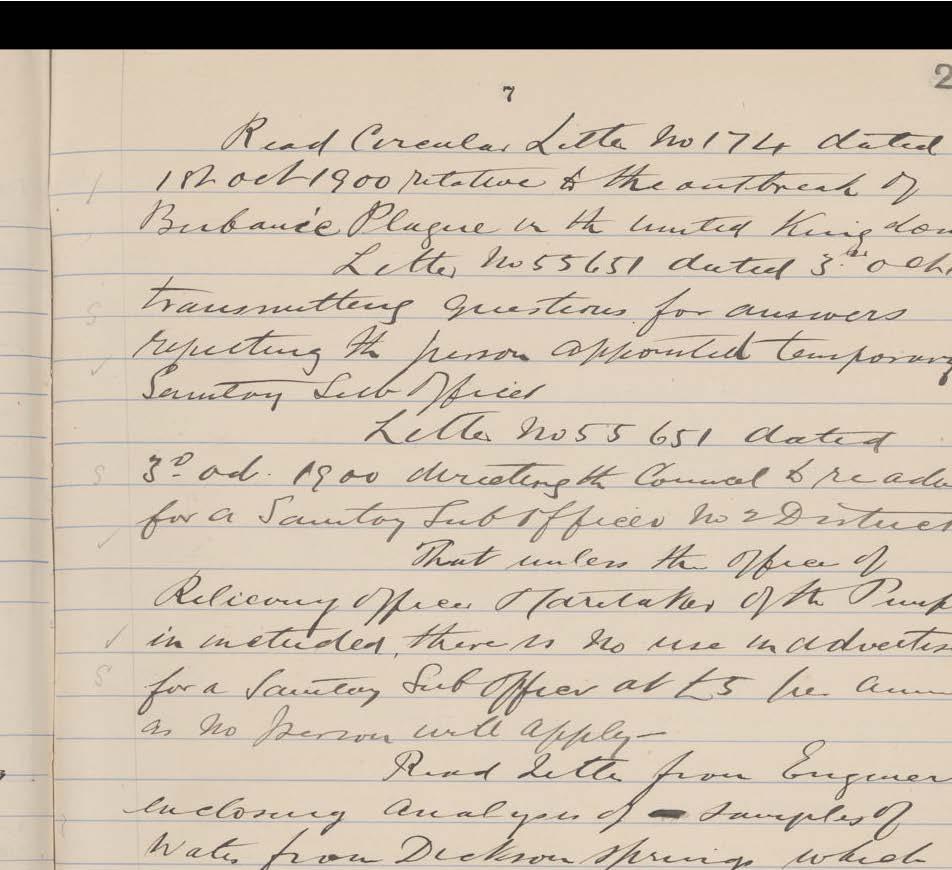 2
7
Read Circular Letter No 174 dated
1st Oct 1900 relative to the outbreak of
Bubanic Plague in the united Kingdom
Letter No 55651 dated 3rd Oct
transmitting questions for answers
respecting the person appointed temporary
Sanitary Sub Officer
Letter No 55651 dated
3d Oct. 1900 directing the Council to re adv
for a Sanitary Sub Officer No 2 District
That unless the office of
Relieving Officer & Caretaker of the Pump
in included, there is no use in advertis
for a Sanitary Sub Officer at £5 per ann
as no person will apply—
Read Letter from Engineer
enclosing analysis of samples of
Water from Dickson springs which